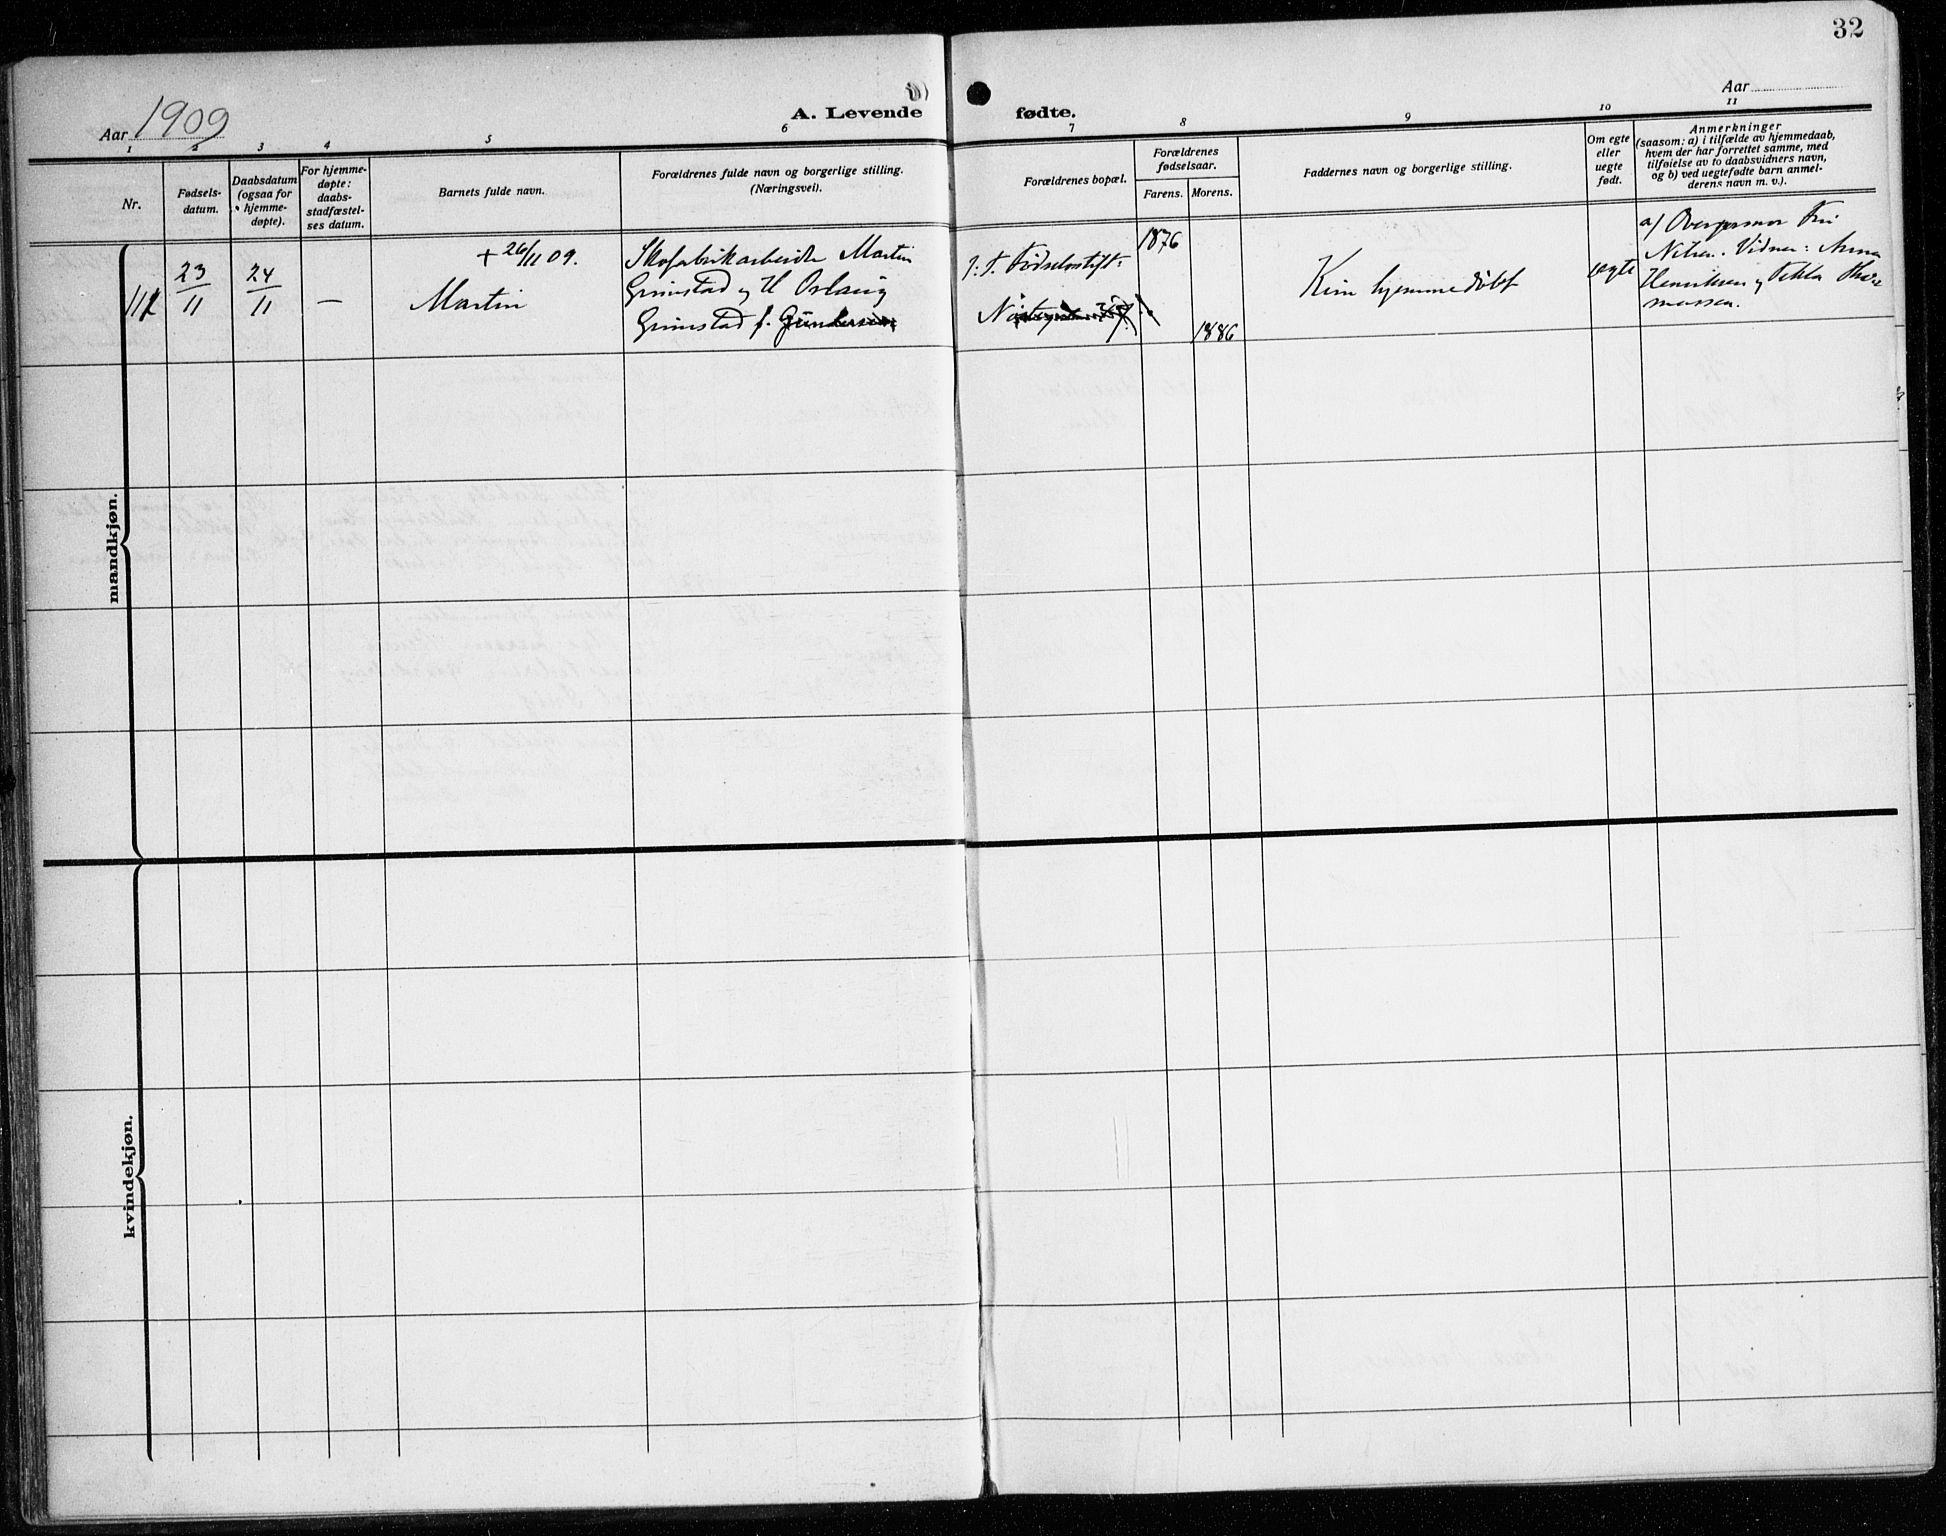 32
Aar 1909
A. Levende fødte.
Aar
1 2 3 4 5 6 7 8 9 10 11
Nr.
Fødsels-
datum.
Daabsdatum
(ogsaa for
hjemme-
døpte).
For hjemme-
døpte:
daabs-
stadfæstel-
ses datum.
Barnets fulde navn.
Forældrenes fulde navn og borgerlige stilling.
(Næringsvei).
Forældrenes bopæl.
Forældrenes
fødselsaar.
Farens. Morens.
Faddernes navn og borgerlige stilling.
Om egte
eller
uegte
født.
Anmerkninger
(saasom: a) i tilfælde av hjemmedaab,
hvem der har forrettet samme, med
tilføielse av to daabsvidners navn,
og b) ved uegtefødte barn anmel-
derens navn m. v.).
mandkjøn.
23/11
24/11
—
+ 26/11 09.
Martin
Skofabrikarbeider Martin
Grimstad og H Oslaug
Grimstad f. Gundersen
J. T. Fødselsstift:
1876
1886
Kun hjemmedøbt
egte
a) Overjormor Fru
Nilsen. Vidner: Anna
Henriksen og Tekla
mussen.
kvindekjøn.